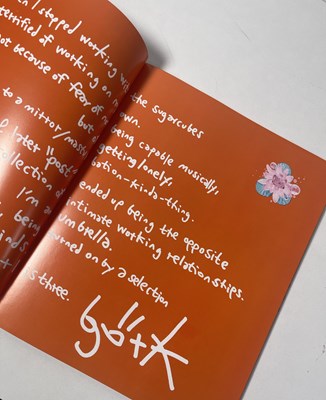 I stopped working the sugarcubes
terrified of working on own.
not because of fear of being capable musically,
but getting lonely,
to a mirror/mast bation-kinda-thing.
later "post" ended up being the opposite
of intimate working relationships.
I'm umbrella.
being urned on by a selection
three.
björk